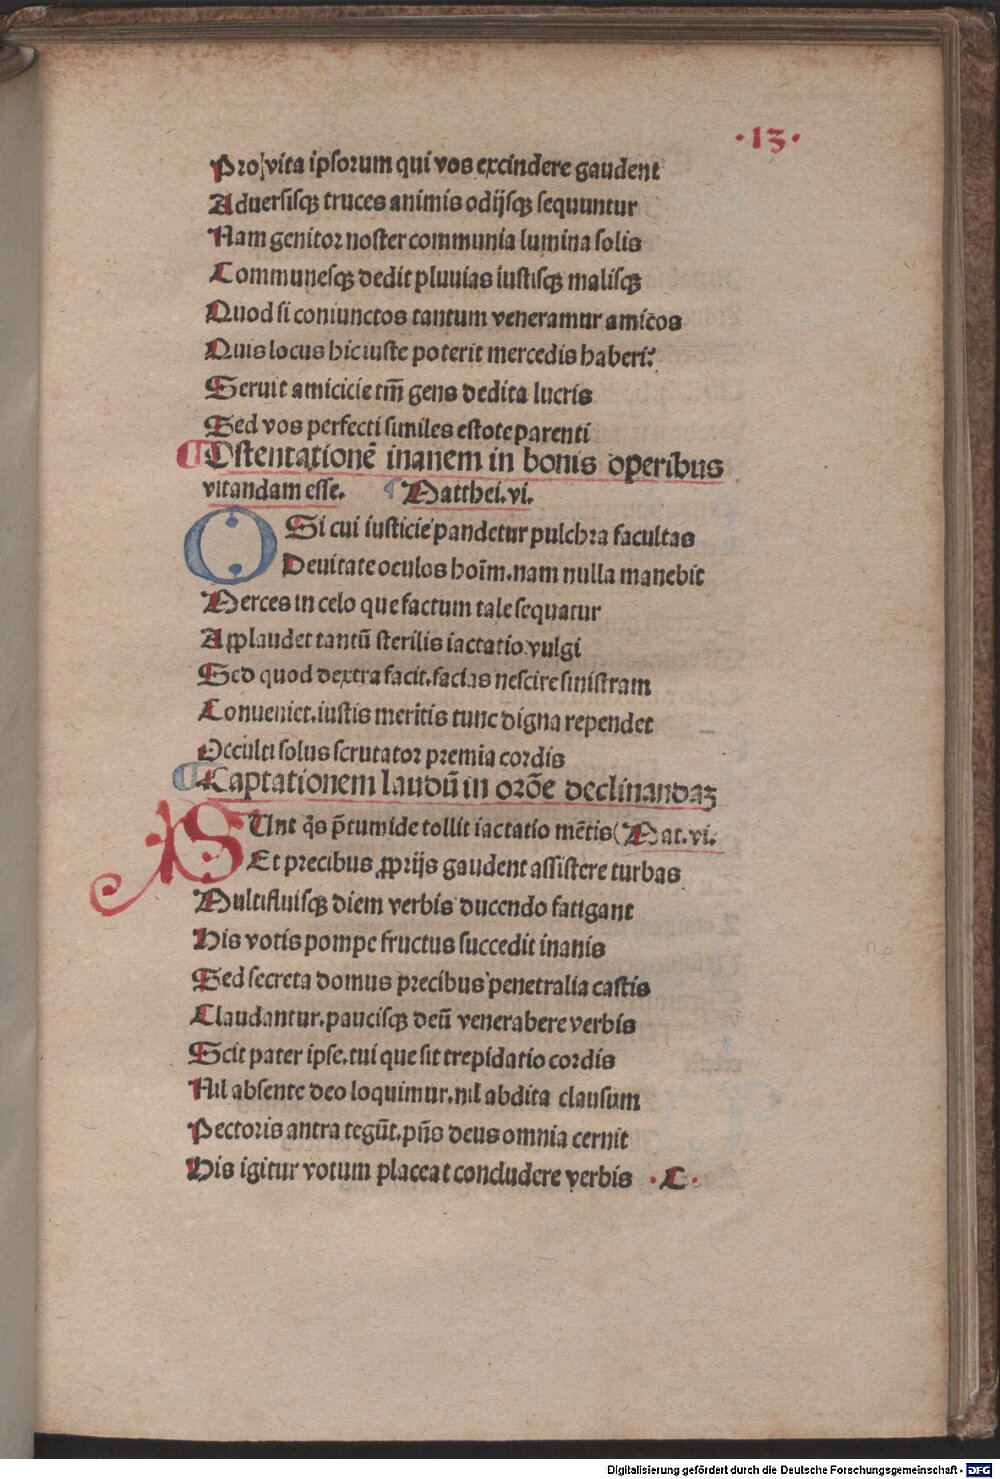 ·13·
Pro vita ipsorum qui vos excindere gaudent
Aduersisqꝫ truces animis odijsqꝫ sequuntur
Nam genitor noster communia lumina solis
Communesqꝫ dedit pluuias iustisqꝫ malisqꝫ
Quod si coniunctos tantum veneramur amicos
Quis locus hic iuste poterit mercedis haberi?
Seruit amicicie tm̃ gens dedita lucris
Sed vos perfecti similes estote parenti
¶ Ostentationẽ inanem in bonis operibus
vitandam esse. ¶ Matthei. vi.
O Si cui iusticie pandetur pulchra facultas
Deuitate oculos hoĩm. nam nulla manebit
Merces in celo que factum tale sequatur
Applaudet tantũ sterilis iactatio vulgi
Sed quod dextra facit. facias nescire sinistram
Conueniet. iustis meritis tunc digna rependet
Occulti solus scrutator premia cordis
¶ Captationem laudũ in orõe declinandaꝫ
SUnt q̃s p̃tumide tollit iactatio mẽtis (Mat. vi.
Et precibus ꝓprijs gaudent assistere turbas
Multifluisqꝫ diem verbis ducendo fatigant
His votis pompe fructus succedit inanis
Sed secreta domus precibus penetralia castis
Claudantur. paucisqꝫ deũ venerabere verbis
Scit pater ipse. tui que sit trepidatio cordis
Nil absente deo loquimur. nil abdita clausum
Pectoris antra tegũt. pñs deus omnia cernit
His igitur votum placeat concludere verbis ·C·
Digitalisierung gefördert durch die Deutsche Forschungsgemeinschaft - DFG